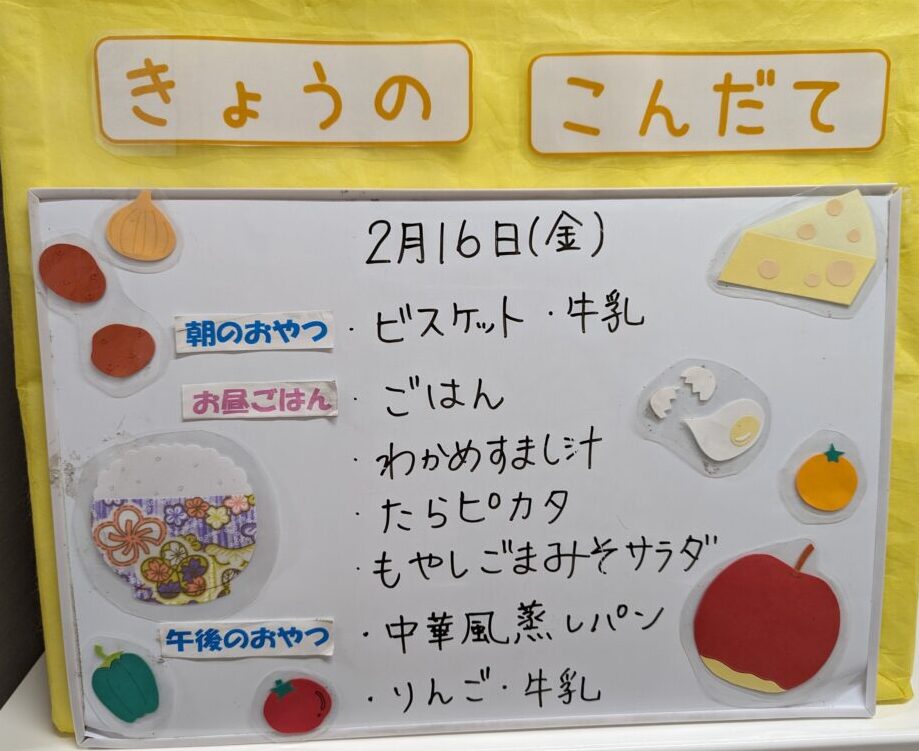 きょうの こんだて
2月16日(金)
朝のおやつ ・ビスケット ・牛乳
お昼ごはん ・ごはん
・わかめすまし汁
・たらピカタ
・もやしごまみそサラダ
午後のおやつ ・中華風蒸しパン
・りんご・牛乳